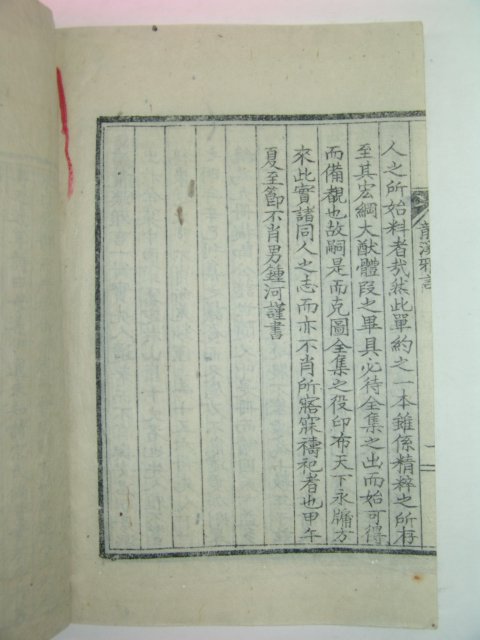 人之所始料者哉然此單約之一本雖係精粹之所存
至其宏綱大猷體段之畢具必待全集之出而始可得
而備覩也故嗣是而克圖全集之役印布天下永牖方
來此實諸同人之志而亦不肖所寤寐禱祀者也甲午
夏至節不肖男鍾河謹書